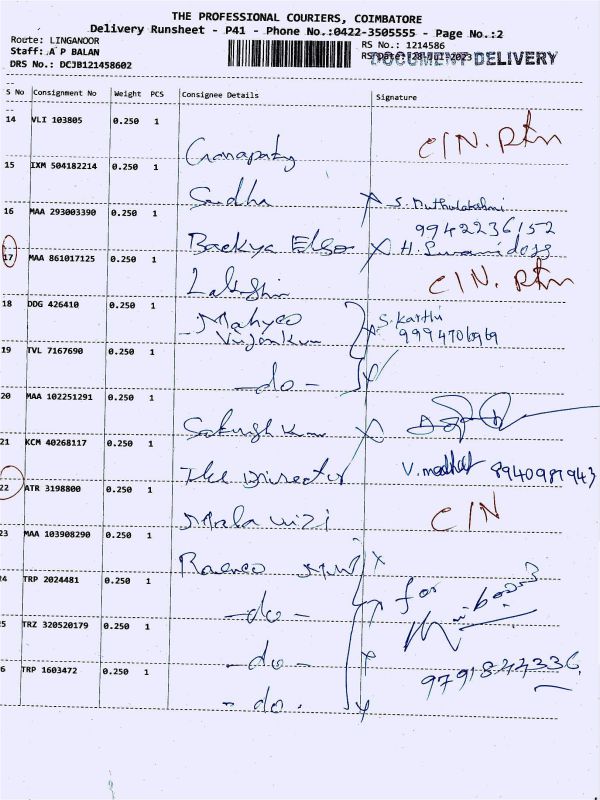 THE PROFESSIONAL COURIERS, COIMBATORE
Delivery Runsheet - P41 - Phone No.:0422-3505555 - Page No.:2
Route: LINGANOOR
RS No.: 1214586
Staff: A P BALAN
RS Date: 28-Jul-2023
DOCUMENT DELIVERY
DRS No.: DCJB121458602
S No Consignment No Weight PCS Consignee Details Signature
14 VLI 103805 0.250 1
Ganapathy CIN. Rtn
15 IXM 504182214 0.250 1
Sudha S. Muthulakshmi
16 MAA 293003390 0.250 1
9942236152
H. Swamidoss
17 MAA 861017125 0.250 1
CIN. Rtn
18 DDG 426410 0.250 1
S. Karthi
9994706969
19 TVL 7167690 0.250 1
-do-
20 MAA 102251291 0.250 1
21 KCM 40268117 0.250 1
The Director V. 8940981943
22 ATR 3198800 0.250 1
Mala CIN
23 MAA 103908290 0.250 1
4 TRP 2024481 0.250 1
for
-do-
5 TRZ 320520179 0.250 1
-do-
6 TRP 1603472 0.250 1
9791844336
-do-